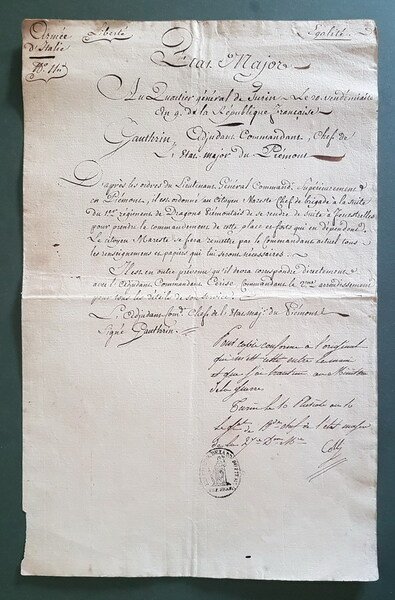 Armée
d'Italie
Liberté
Egalité
Etat Major
Au Quartier général de Turin, Le 20. Vendémiaire
an 9. de la République française
Gauthrin, Adjudant Commandant, Chef de
L'Etat major du Piémont
D'après les ordres du Lieutenant Général Command. Supérieurement
en Piémont, il est ordonné au Citoyen Mareste Chef de brigade à la Suite
du 1er régiment de Dragons Piémontais de se rendre de Suite à fenestrelles
pour prendre le commandement de cette place et forts qui en dépendent.
Le citoyen Mareste se fera remettre par le commandant actuel tous
les renseignemens et papiers qui lui seront nécessaires.
Il est en outre prévenu qu'il devra correspondre directement
avec l'Adjudant Commandant Cerise Commandant le 2me arrondissement
pour tous les détails de son service.
L'Adjudant Chef de l'Etat maj. du Piémont
Signé Gauthrin
Pour copie conforme à l'original
qui est resté entre les mains
et que j'ai transmis au Ministre
de la Guerre
Turin le
chef de l'état major
de la
Colli